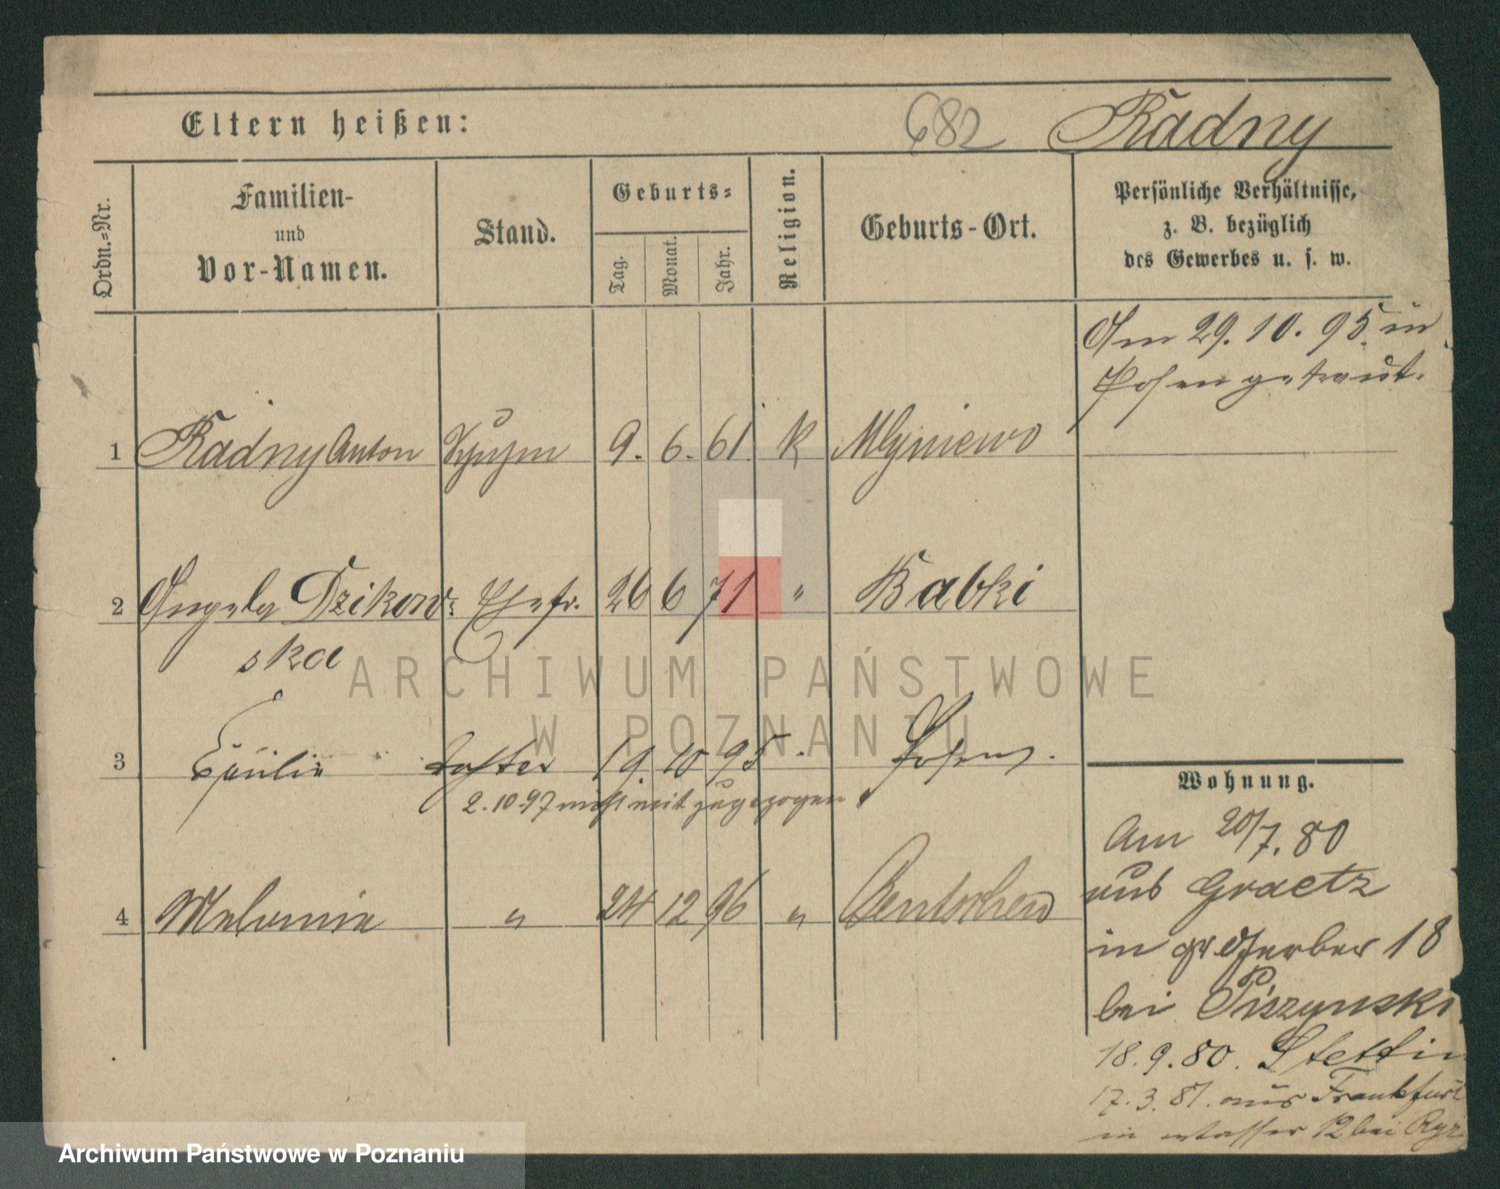 Eltern heißen: 682 Radny
Ordn.=Nr.
Familien-
und
Vor-Namen.
Stand.
Geburts=
Tag.
Monat.
Jahr.
Religion.
Geburts-Ort.
Persönliche Verhältnisse,
z. B. bezüglich
des Gewerbes u. s. w.
Am 29.10.95 in
Posen getraut.
1 Radny Anton 9. 6. 61 K Mlyniewo
2 Angela Dzikow= Ehefr. 26 6 71 " Babki
ska
3 Tochter 19. 10 95 Posen.
2.10.97 nicht mit zugezogen
4 Melanie " 24 12 96 " Bentschen
Wohnung.
Am 20/7. 80
aus Graetz
in gr Gerber 18
bei Piszynski
18.9.80. Stettin
17.3.81. aus Frankfurt
in Wasser 12 bei
ARCHIWUM PAŃSTWOWE
W POZNANIU
Archiwum Państwowe w Poznaniu